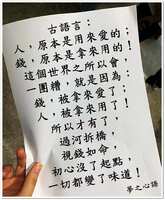 古語言：
人，原本是用來愛的；
錢，原本是拿來用的！
這個世界之所以會
一團糟，就是因為：
錢，被拿來愛了；
人，被拿來用了！
所以才有了，
過河拆橋，
視錢如命，
初心沒了起點，
一切都變了味道！
夢之心語